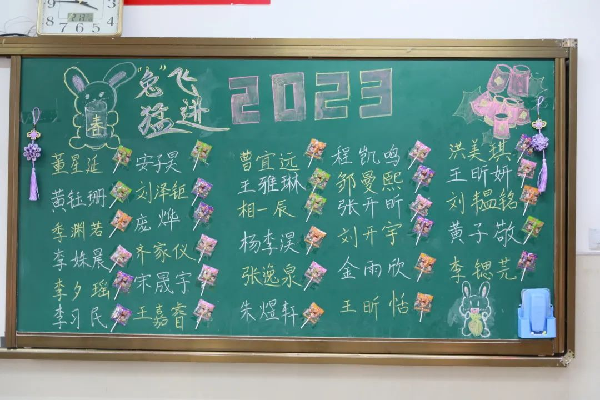 "兔"飞猛进 2023
春
董星延 安子昊 曹宜远 程凯鸣 洪美琪
黄钰珊 刘泽钜 王雅琳 邹曼熙 王昕妍
季渊若 庞烨 相一辰 张开昕 刘韫铭
李姝晨 齐家仪 杨李淏 刘开宇 黄子敬
李夕瑶 宋晟宇 张逸泉 金雨欣 李锶芫
李习民 王嘉睿 朱煜轩 王昕恬